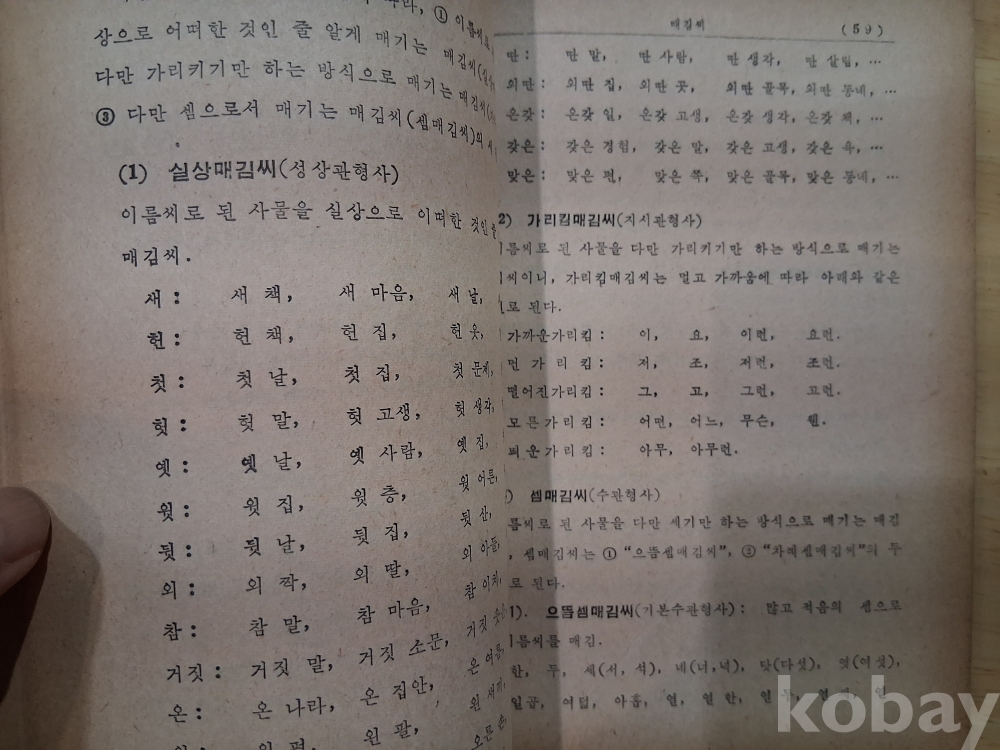 상으로 어떠한 것인 줄 알게 매기는 매김씨
다만 가리키기만 하는 방식으로 매기는 매김씨
③ 다만 셈으로서 매기는 매김씨(셈매김씨)의
(1) 실상매김씨(성상관형사)
이름씨로 된 사물을 실상으로 이떠한 것인
매김씨.
새 : 새 책, 새 마음, 새 날,
헌 : 헌 책, 헌 집, 헌 옷,
첫 : 첫 날, 첫 집, 첫 문제,
헛 : 헛 말, 헛 고생, 헛 생각,
옛 : 옛 날, 옛 사람, 옛 집,
윗 : 윗 집, 윗 층, 윗 어른,
뒷 : 뒷 날, 뒷 집, 뒷 산,
외 : 외 짝, 외 딸, 외 아들,
참 : 참 말, 참 마음, 참 이치,
거짓 : 거짓 말, 거짓 소문, 거짓
온 : 온 나라, 온 집안, 온
왼 팔,
매김씨 (59)
딴 : 딴 말, 딴 사람, 딴 생각, 딴 살림, …
외딴 : 외딴 집, 외딴 곳, 외딴 골목, 외딴 동네, …
온갖 : 온갖 일, 온갖 고생, 온갖 생각, 온갖 채, …
갖은 : 갖은 경험, 갖은 말, 갖은 고생, 갖은 욕, …
맞은 : 맞은 편, 맞은 쪽, 맞은 골목, 맞은 동네, …
2) 가리킴매김씨(지시관형사)
름씨로 된 사물을 다만 가리키기만 하는 방식으로 매기는
씨이니, 가리킴매김씨는 멀고 가까움에 따라 아래와 같은
로 된다.
가까운가리킴 : 이, 요, 이런, 요런.
먼 가 리 킴 : 저, 조, 저런, 조런.
떨어진가리킴 : 그, 고, 그런, 고런.
모른가리킴 : 어떤, 어느, 무슨, 웬.
띄운가리킴 : 아무, 아무런.
) 셈매김씨(수관형사)
름씨로 된 사물을 다만 세기만 하는 방식으로 매기는 매김
, 셈매김씨는 ① “으뜸셈매김씨”, ② “차례셈매김씨”의 두
로 된다.
1). 으뜸셈매김씨(기본수관형사) : 많고 적음의 셈으로
이름씨를 매김.
한, 두, 세(서, 석), 네(너,넉), 닷(다섯), 엿(여섯),
일곱, 여덟, 아홉, 열, 열 한,
kobay